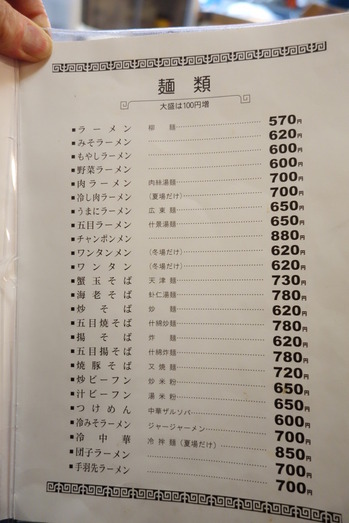 麺類
大盛は100円増
■ラーメン 柳麺 570円
■みそラーメン 620円
■もやしラーメン 600円
■野菜ラーメン 600円
■肉ラーメン 肉絲湯麺 700円
■冷し肉ラーメン (夏場だけ) 700円
■うまにラーメン 広東麺 650円
■五目ラーメン 什景湯麺 650円
■チャンポンメン 880円
■ワンタンメン (冬場だけ) 620円
■ワンタン (冬場だけ) 620円
■蟹玉そば 天津麺 730円
■海老そば 虾仁湯麺 780円
■炒そば 炒麺 620円
■五目焼そば 什綿炒麺 780円
■揚そば 炸麺 620円
■五目揚そば 什綿炸麺 780円
■焼豚そば 叉焼麺 720円
■炒ビーフン 炒米粉 650円
■汁ビーフン 湯米粉 650円
■つけめん 中華ザルソバ 600円
■冷みそラーメン ジャージャーメン 700円
■冷中華 冷拌麺(夏場だけ) 850円
■団子ラーメン 700円
■手羽先ラーメン 700円